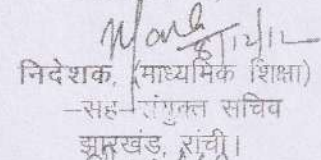 निदेशक, (माध्यमिक शिक्षा)
-सह- संयुक्त सचिव
झारखंड, रांची।